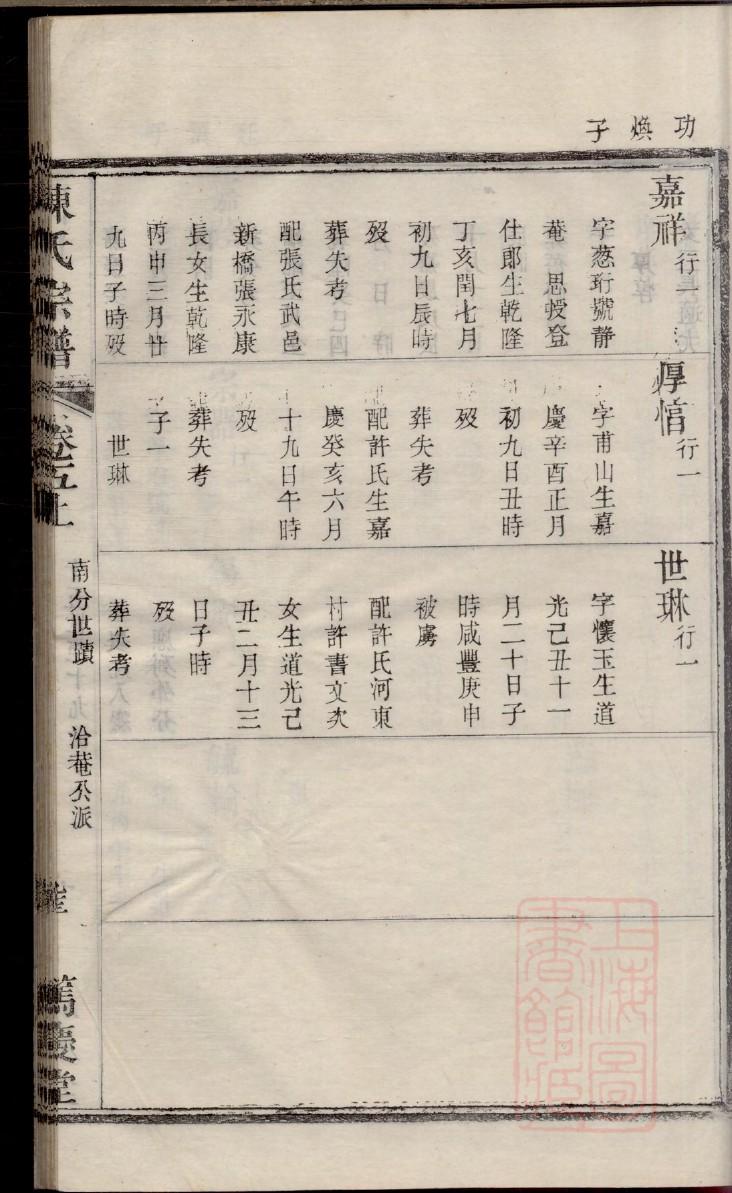 功煥子
嘉祥 行一
字葱珩號靜
菴 恩授登
仕郎生乾隆
丁亥閏七月
初九日辰時
歿
葬失考
配張氏武邑
新橋張永康
長女生乾隆
丙申三月廿
九日子時歿
厚愔 行一
字甫山生嘉
慶辛酉正月
初九日丑時
歿
葬失考
配許氏生嘉
慶癸亥六月
十九日午時
歿
葬失考
子一
世琳
世琳 行一
字懷玉生道
光己丑十一
月二十日子
時咸豐庚申
被虜
配許氏河東
村許書文次
女生道光己
丑二月十三
日子時
歿
葬失考
陳氏宗譜 卷五上
南分世蹟 洽菴公派
萬慶堂
上海圖書館藏